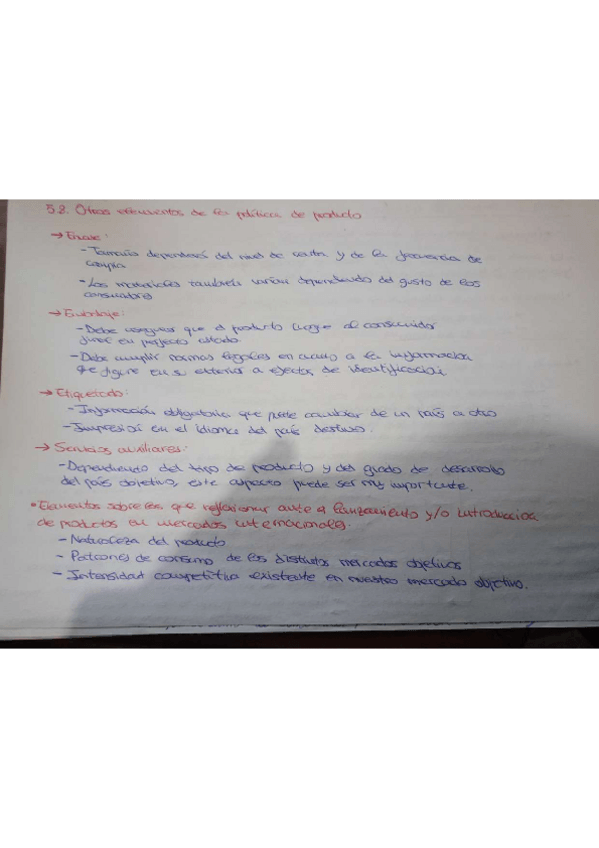 5.2. Otros elementos de la política de producto
→ Envase:
- Tamaño dependerá del nivel de renta y de la frecuencia de
compra
- Los materiales también varían dependiendo del gusto de los
consumidores
→ Embalaje:
- Debe asegurar que el producto llegue al consumidor
final en perfecto estado.
- Debe cumplir normas legales en cuanto a la información
que figure en su exterior a efectos de identificación
→ Etiquetado:
- Información obligatoria que puede cambiar de un país a otro
- Impresión en el idioma del país destino.
→ Servicios auxiliares:
- Dependiendo del tipo de producto y del grado de desarrollo
del país objetivo, este aspecto puede ser muy importante.
• Elementos sobre los que reflexionar ante el lanzamiento y/o introducción
de productos en mercados internacionales.
- Naturaleza del producto
- Patrones de consumo de los distintos mercados objetivos
- Intensidad competitiva existente en nuestro mercado objetivo.